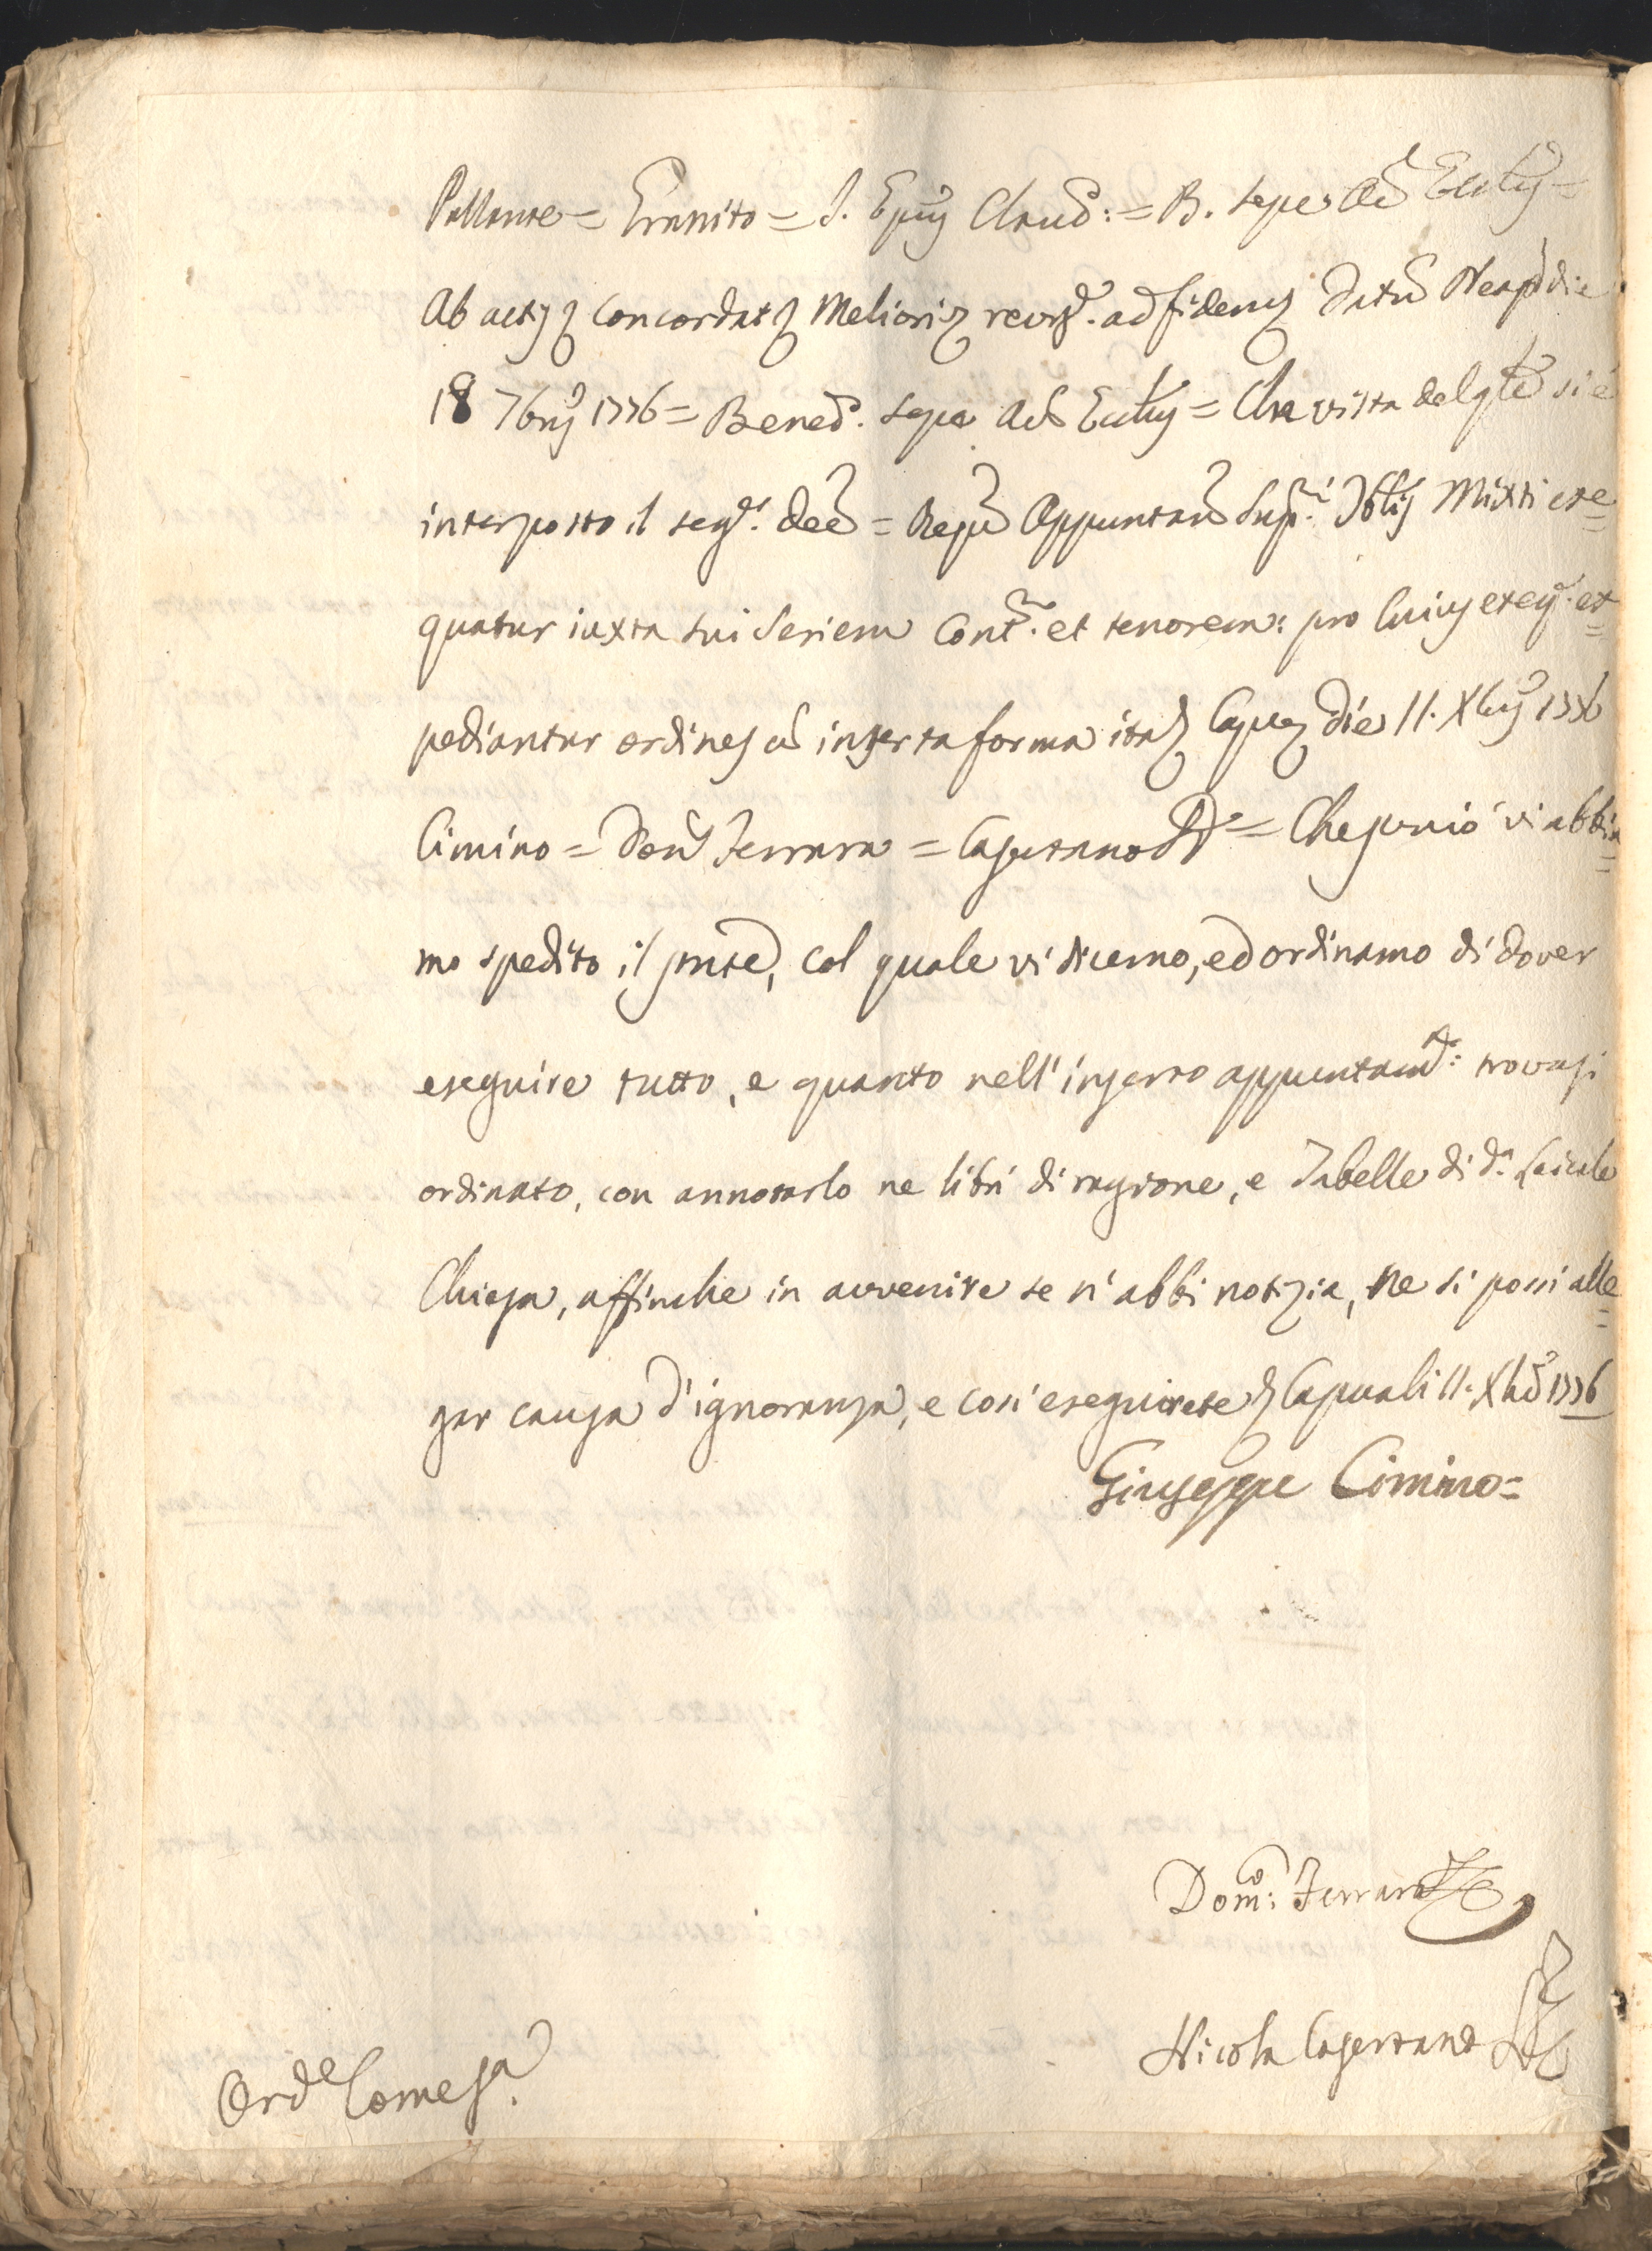 Pallante = Granito = J. Epũs Claud: = B. Sepe Act Ectus =
Ab actis concordat Meliori revis. ad fidem Datũ Neap die
18 7bris 1776 = Bened. Sepe Act Ectus = Che vista del qle si è
interposto il seg. Dec = Regũ Appuntam Sup.i Tblis Mixti exe=
quatur iuxta sui Seriem Cont. et tenorem: pro cuius exeq. ex=
pediantur ordines cũ inserta forma ita Capuę die 11. Xbris 1776
Cimino = Dom Ferrara = Casertano = Che perciò vi abbia=
mo spedito il pnte, col quale vi dicemo, ed ordinamo di dover
eseguire tutto, e quanto nell' inserto appuntam: trovasi
ordinato, con annotarlo ne libri di ragione, e Tabelle di d.a Laicale
Chiesa, affinche in avvenire se n' abbi notizia, ne si possi alle=
gar causa d' ignoranza, e così eseguirete Capua li 11. Xbre 1776
Giuseppe Cimino =
Dom: Ferrara
Nicola Casertano
Orde Come sa.